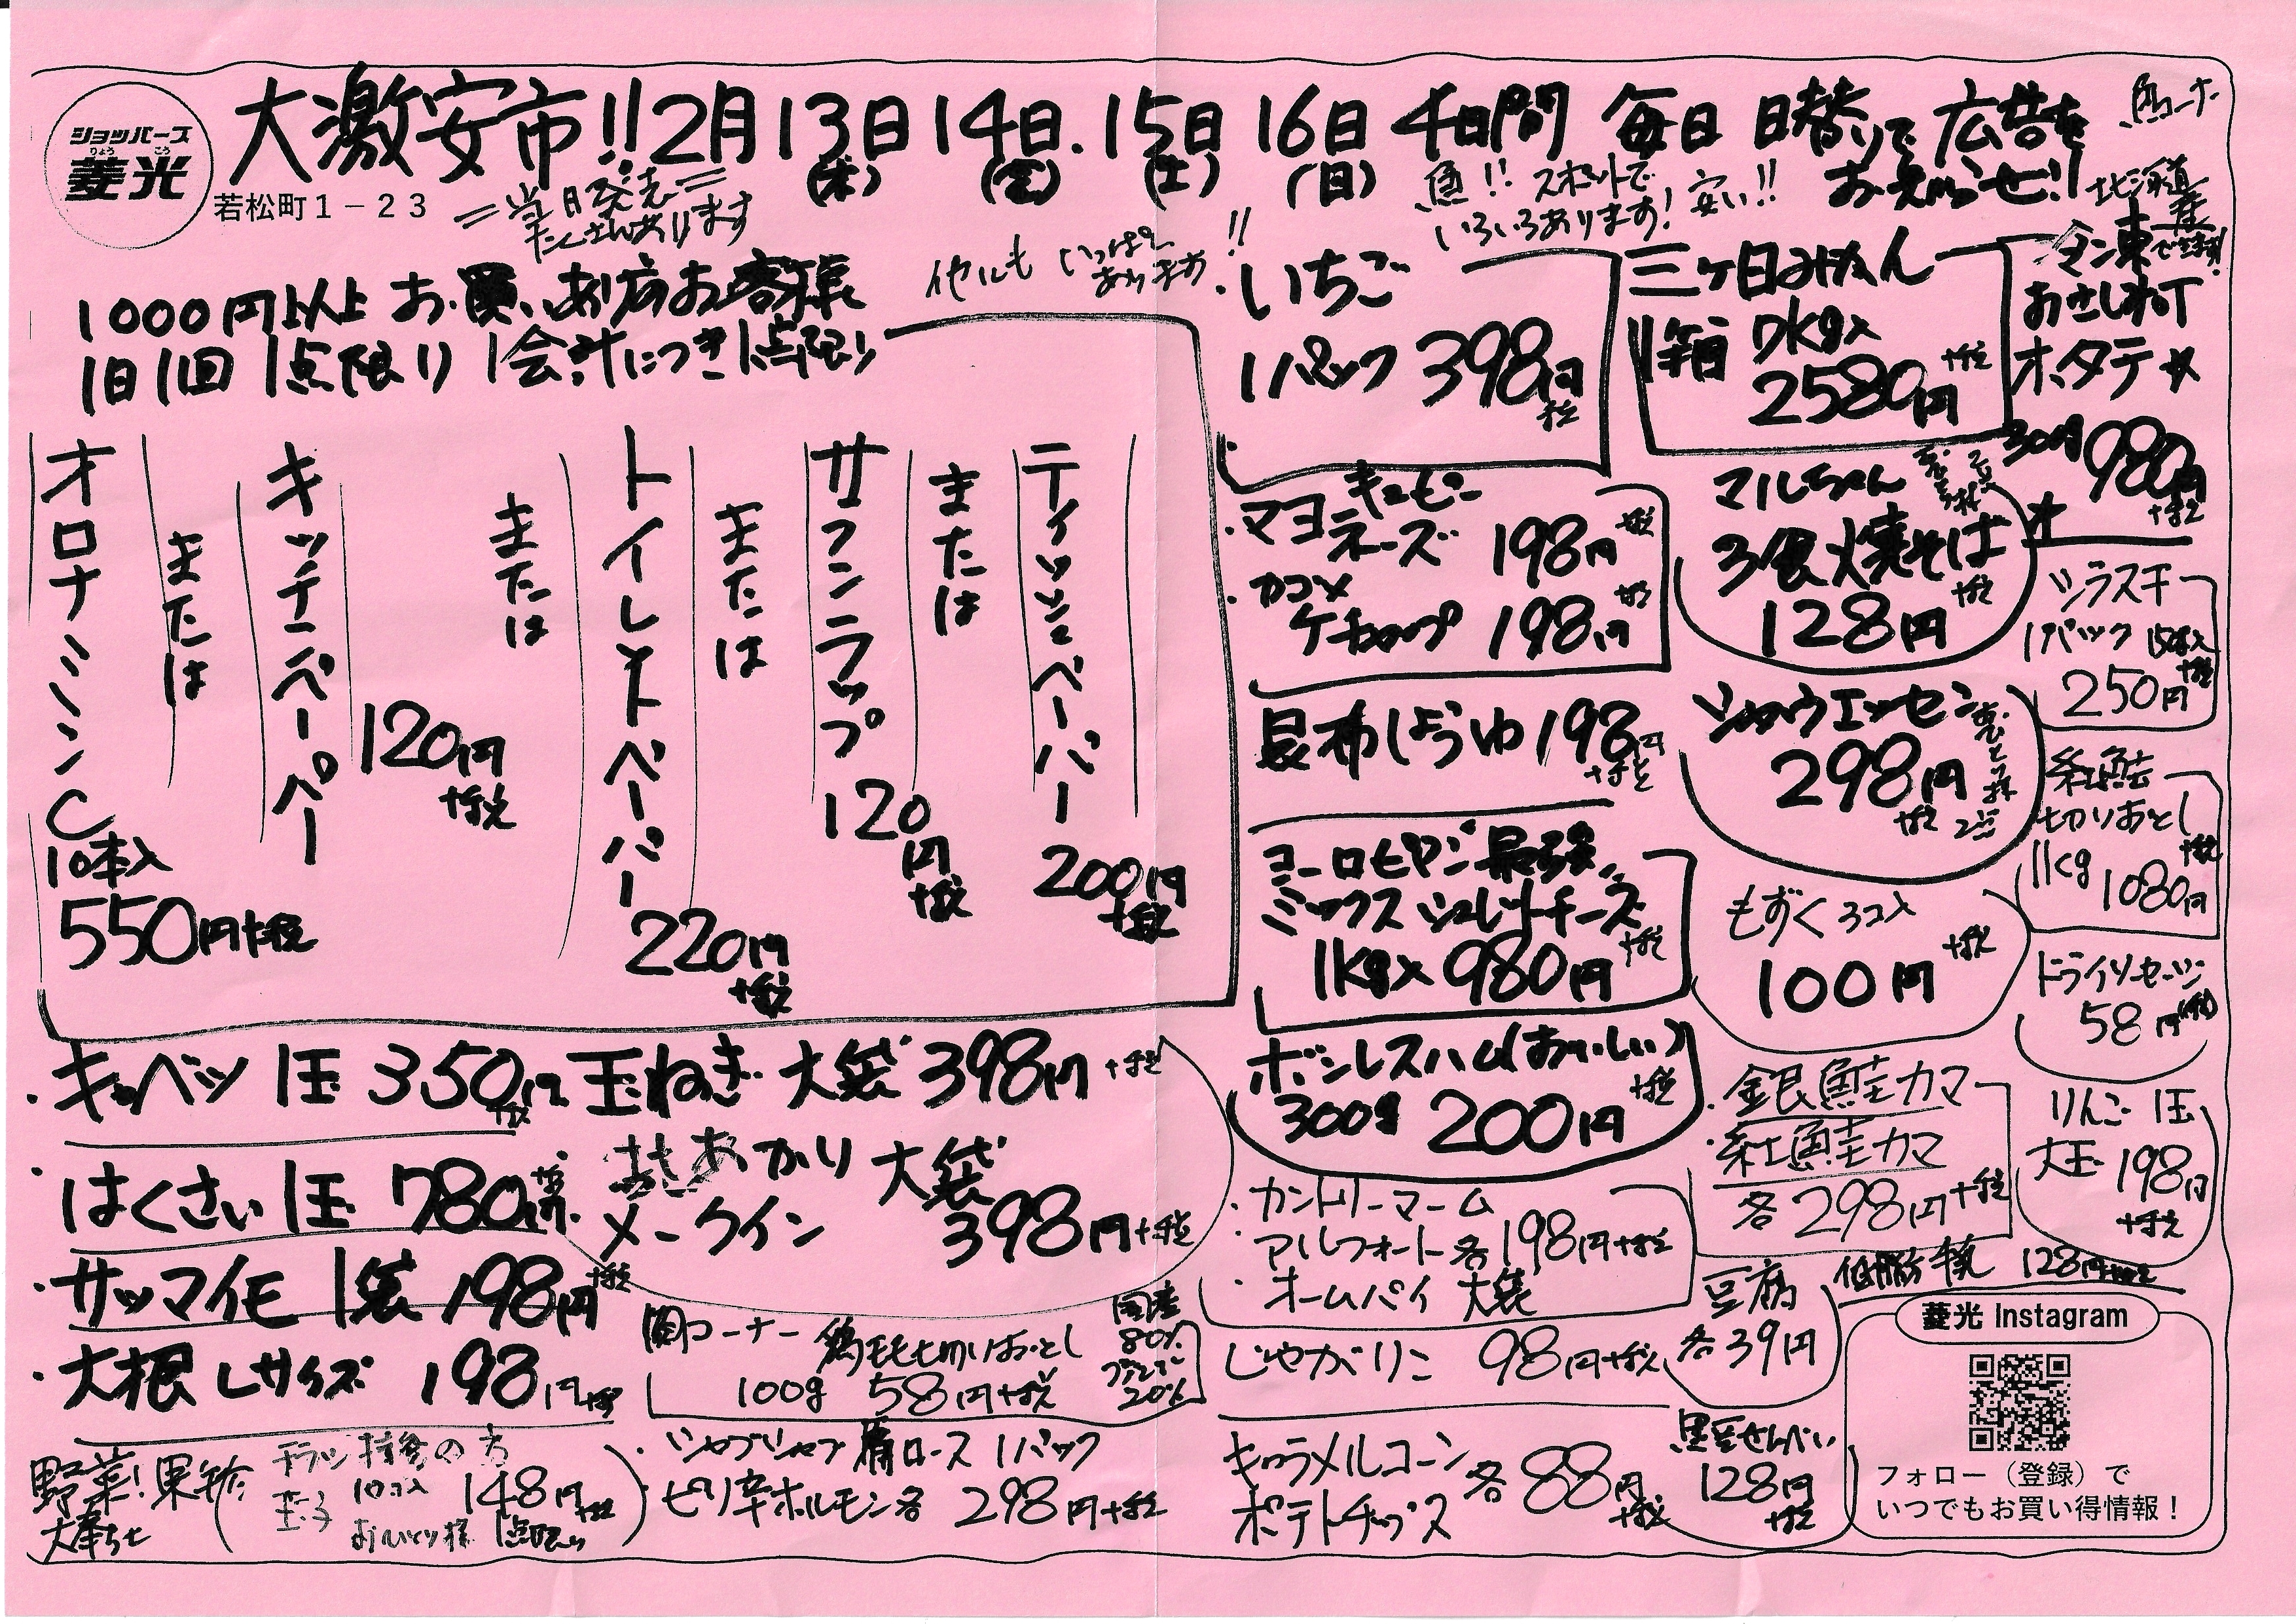 ショッパーズ
りょう こう
菱光
若松町1−23
大激安市!! 2月13日(木) 14日(金). 15日(土) 16日(日) 4日間 毎日 日替りで 広告を
おえらせ!!
=当日発売=
たくさんあります
魚!! スポットで
いろいろあります! 安い!!
魚コーナー
北海道産
冷凍で生食用!
おさしみ用
ホタテ
300g 980円
+税
他にも いっぱい
あります!!
1000円以上 お買いあげのお客様
1日1回 1点限り 1会計につき1点限り
オロナミンC
10本入
550円+税
または
キッチンペーパー
120円
+税
または
トイレットペーパー
220円
+税
または
サランラップ
120
円
+税
または
ティッシュペーパー
200円
+税
・いちご
1パック 398円
+税
三ヶ日みかん
1箱 7kg入
2580円
+税
・マヨネーズ
キューピー
198円
+税
・カゴメ
ケチャップ 198円
+税
マルちゃん
3食焼そば
128円
+税
シラス干
1パック
250円
+税
昆布しょうゆ 198円
+税
シャウエッセン
298円
+税
お一人様
2点
紅鮭
切りおとし
1kg 1080円
+税
ヨーロピアン
ミックス シュレットチーズ
1kg入 980円
+税
もずく 3コ入
100円
+税
ドライソーセージ
58円
ボンレスハム(おいしい)
300g 200円
+税
・銀鮭カマ
・紅鮭カマ
各298円+税
りんご 1玉
大玉 198円
+税
・キャベツ 1玉 350円
+税
玉ねぎ 大袋 398円
+税
・はくさい 1玉 780円
きたあかり 大袋
メークイン 398円+税
・サツマイモ 1袋 198円
+税
・大根 Lサイズ 198円+税
・カントリーマーム
・アルフォート 各198円+税
・ホームパイ 大袋
豆腐
各39円
低脂肪乳 128円+税
肉コーナー 鶏モモ切りおとし
100g 58円+税
国産
80%
20%
じゃがりこ 98円+税
野菜!果物
チラシ持参の方
玉子 10コ入 148円
+税
おひとり様 1点限り
・シャブシャブ 肩ロース 1パック
・ピリ辛ホルモン 各 298円+税
キャラメルコーン
ポテトチップス
各88円
+税
黒豆せんべい
128円
+税
菱光 Instagram
フォロー（登録）で
いつでもお買い得情報！